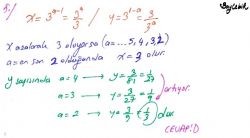 x=3^(a-1)=3^a/3 / y=3^(1-a)=3/3^a
x azalarak 3 oluyorsa (a=....5,4,3,2)
a=en son 2 olduğunda x=3 olur.
y sayısında a=4 → y=3/81=1/27
a=3 → y=3/27=1/9 artıyor.
a=2 → y=3/9=1/3 olur
CEVAP:D